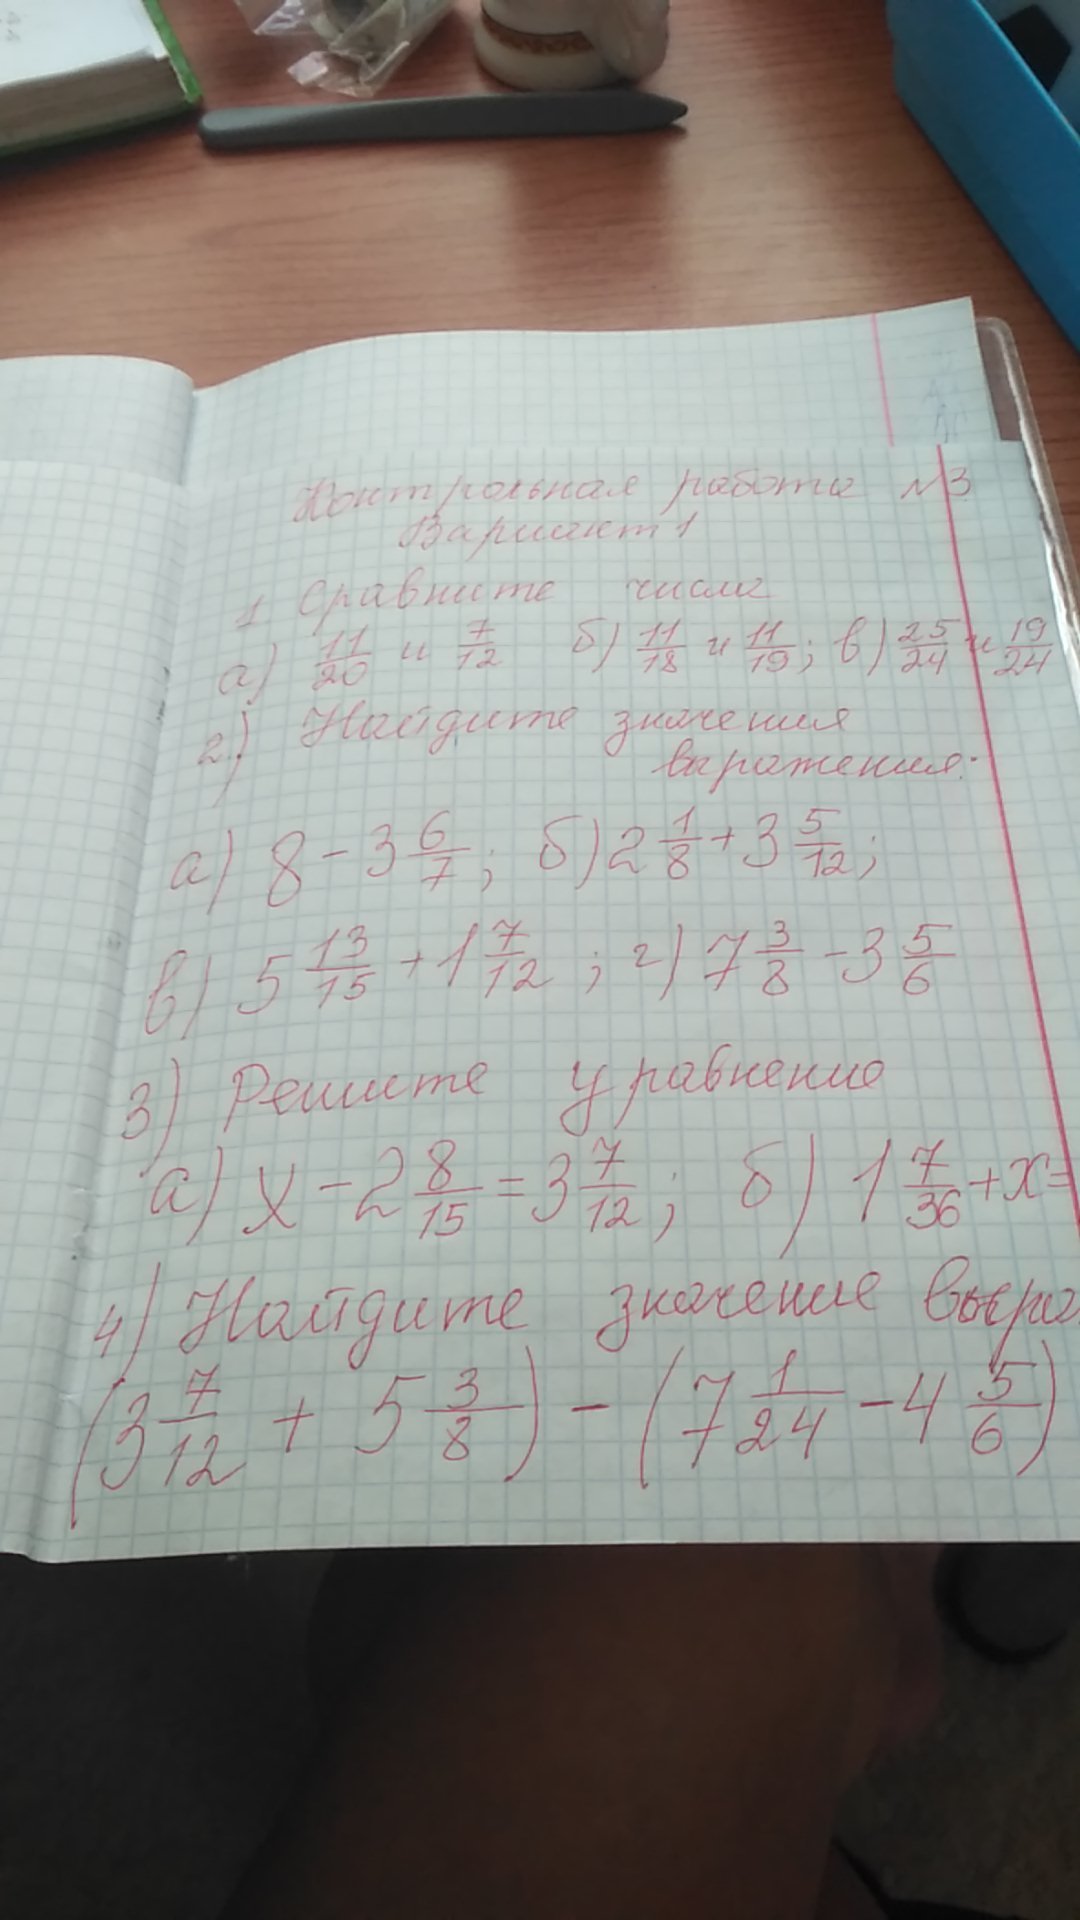 Контрольная работа №3
Вариант 1
1 Сравните числа
а) 11/20 и 7/12 б) 11/18 и 11/19; в) 25/24 и 19/24
2.) Найдите значения
выражения:
а) 8 - 3 6/7; б) 2 1/8 + 3 5/12;
в) 5 13/15 + 1 7/12; г) 7 3/8 - 3 5/6
3) Решите уравнение
а) х - 2 8/15 = 3 7/12; б) 1 7/36 + х =
4) Найдите значение выра
(3 7/12 + 5 3/8) - (7 1/24 - 4 5/6)